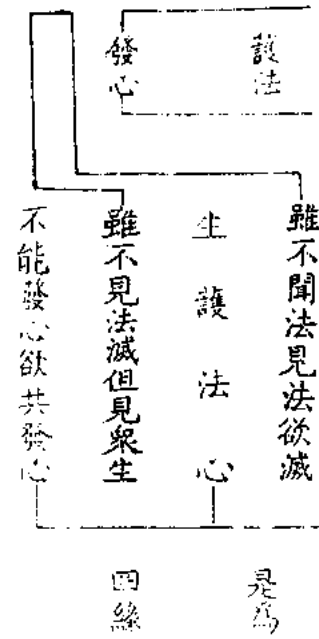 護法
發心
雖不聞法見法欲滅
生護法心
雖不見法滅但見衆生
不能發心欲共發心
是為
四緣